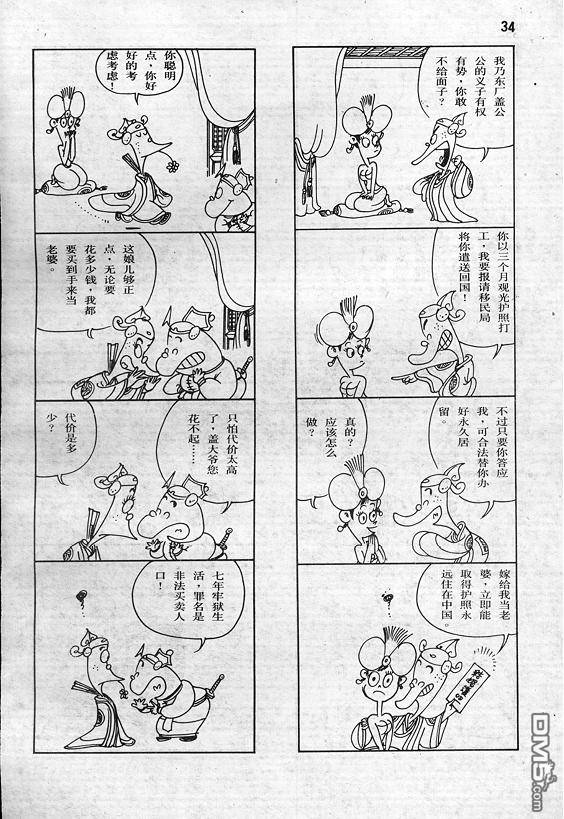 34
我乃东厂盖公
公的义子有权
有势，你敢
不给面子？
你以三个月观光护照打
工，我要报请移民局
将你遣送回国！
不过只要你答应
我，可合法替你办
好永久居
留。
真的？
应该怎么
做？
嫁给我当老
婆，立即能
取得护照永
远住在中国。
你聪明
点，你好
好的考
虑考虑！
这娘儿够正
点，无论要
花多少钱，我都
要买到手来当
老婆。
只怕代价太高
了，盖大爷您
花不起……
代价是多
少？
七年牢狱生
活，罪名是
非法买卖人
口！
DM5.com